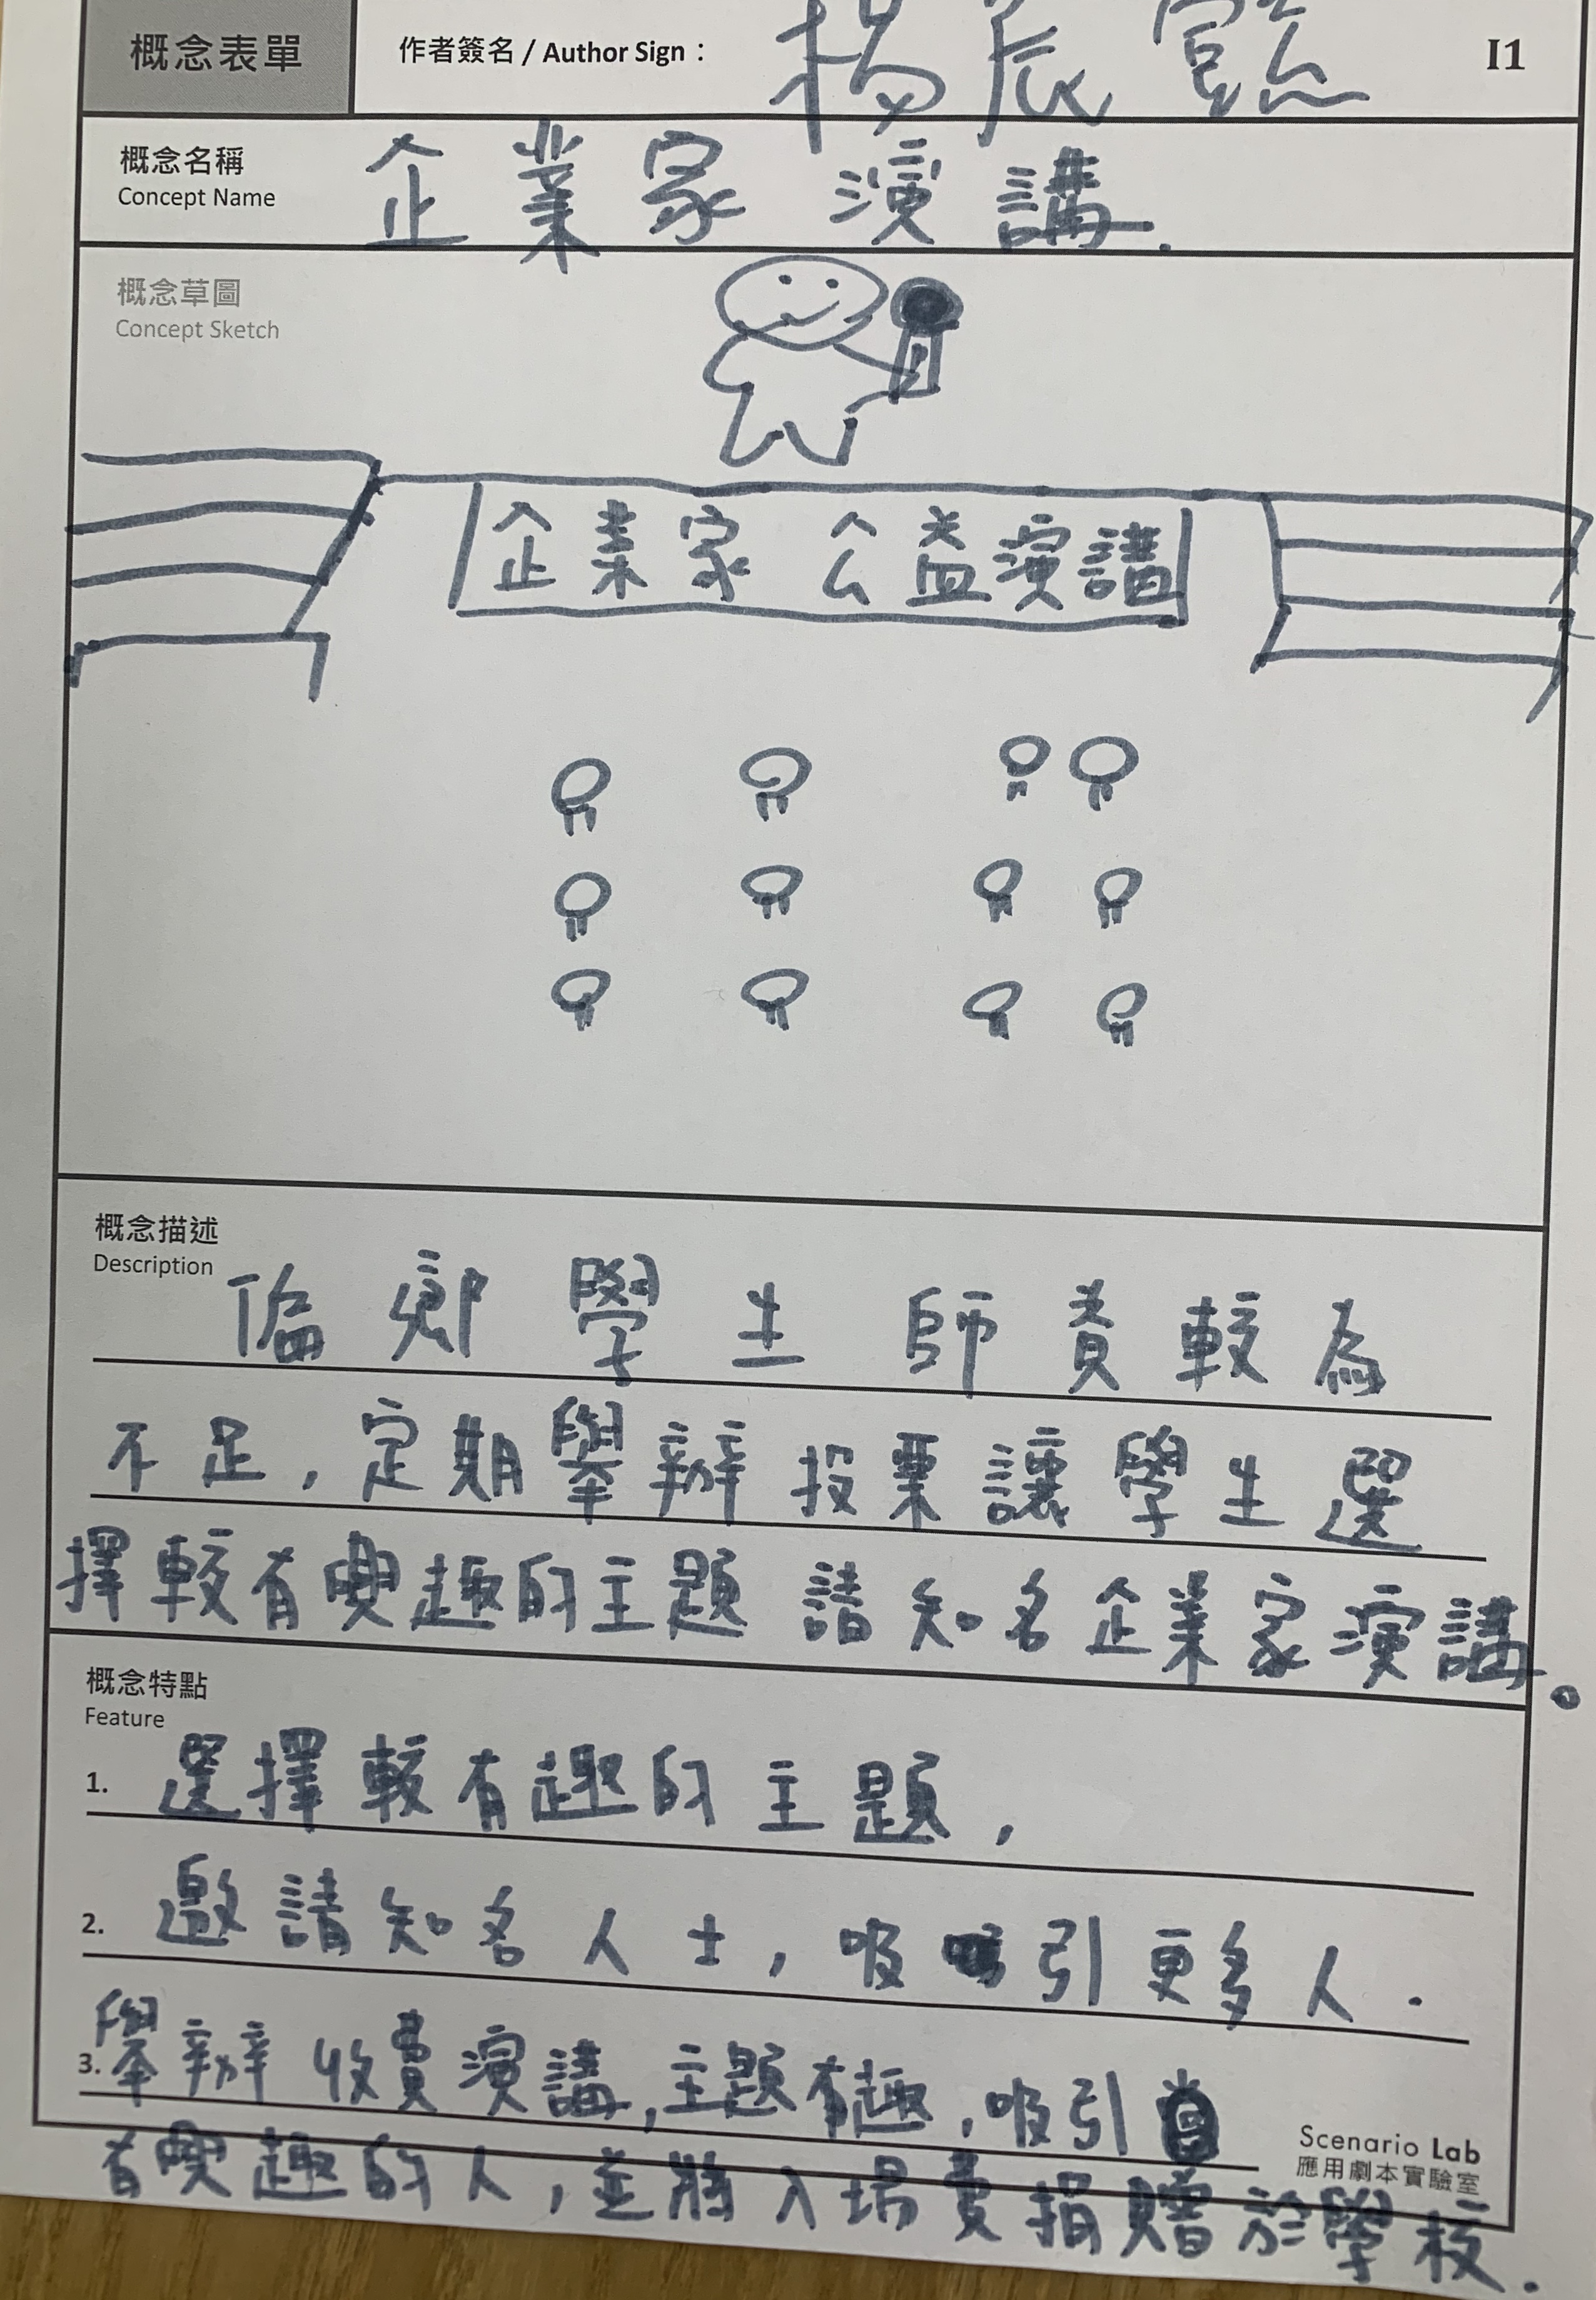 概念表單
作者簽名 / Author Sign：
楊辰
I1
概念名稱
Concept Name
企業家演講.
概念草圖
Concept Sketch
企業家公益演講
概念描述
Description
偏鄉學生師資較為
不足,定期舉辦投票讓學生選
擇較有興趣的主題請知名企業家演講。
概念特點
Feature
1. 選擇較有趣的主題,
2. 邀請知名人士,吸引更多人.
3. 舉辦收費演講,主題有趣,吸引
有興趣的人,並將入場費捐贈於學校.
Scenario Lab
應用劇本實驗室